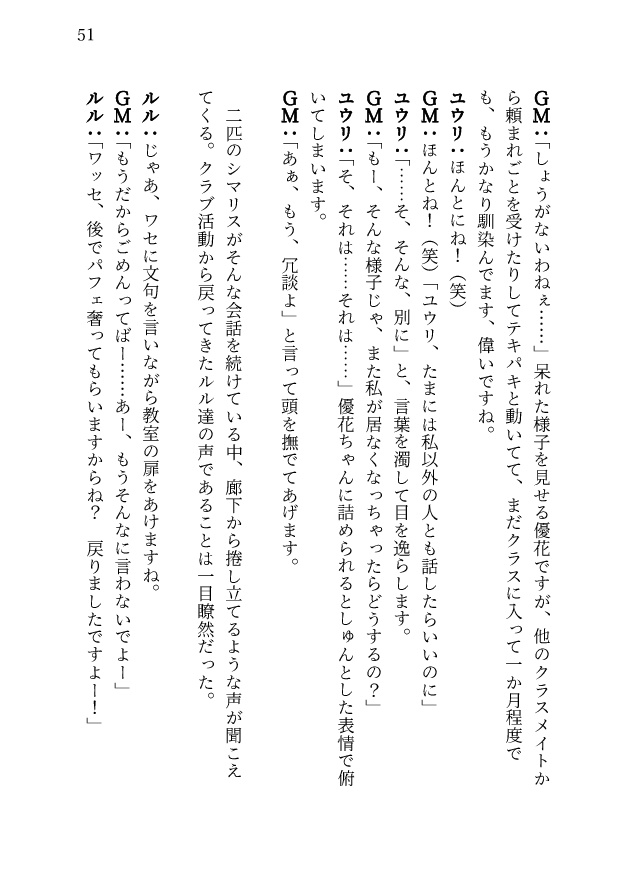 51
GM:「しょうがないわねぇ……」呆れた様子を見せる優花ですが、他のクラスメイトか
ら頼まれごとを受けたりしてテキパキと動いてて、まだクラスに入って一か月程度で
も、もうかなり馴染んでます、偉いですね。
ユウリ:ほんとにね！（笑）
GM:ほんとね！（笑）「ユウリ、たまには私以外の人とも話したらいいのに」
ユウリ:「……そ、そんな、別に」と、言葉を濁して目を逸らします。
GM:「もー、そんな様子じゃ、また私が居なくなっちゃったらどうするの？」
ユウリ:「そ、それは……それは……」優花ちゃんに詰められるとしゅんとした表情で俯
いてしまいます。
GM:「あぁ、もう、冗談よ」と言って頭を撫でてあげます。
二匹のシマリスがそんな会話を続けている中、廊下から捲し立てるような声が聞こえ
てくる。クラブ活動から戻ってきたルル達の声であることは一目瞭然だった。
ルル:じゃあ、ワセに文句を言いながら教室の扉をあけますね。
GM:「もうだからごめんってばー……あー、もうそんなに言わないでよー」
ルル:「ワッセ、後でパフェ奢ってもらいますからね？　戻りましたですよー！」